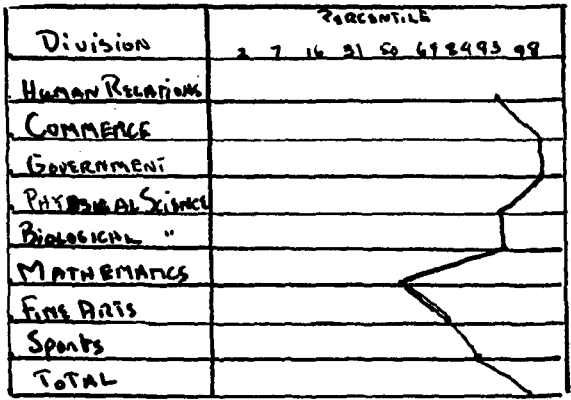 PERCENTILE
Division 2 7 16 31 50 69 84 93 98
HUMAN RELATIONS
COMMERCE
GOVERNMENT
PHYSICAL SCIENCE
BIOLOGICAL "
MATHEMATICS
FINE ARTS
Sports
TOTAL